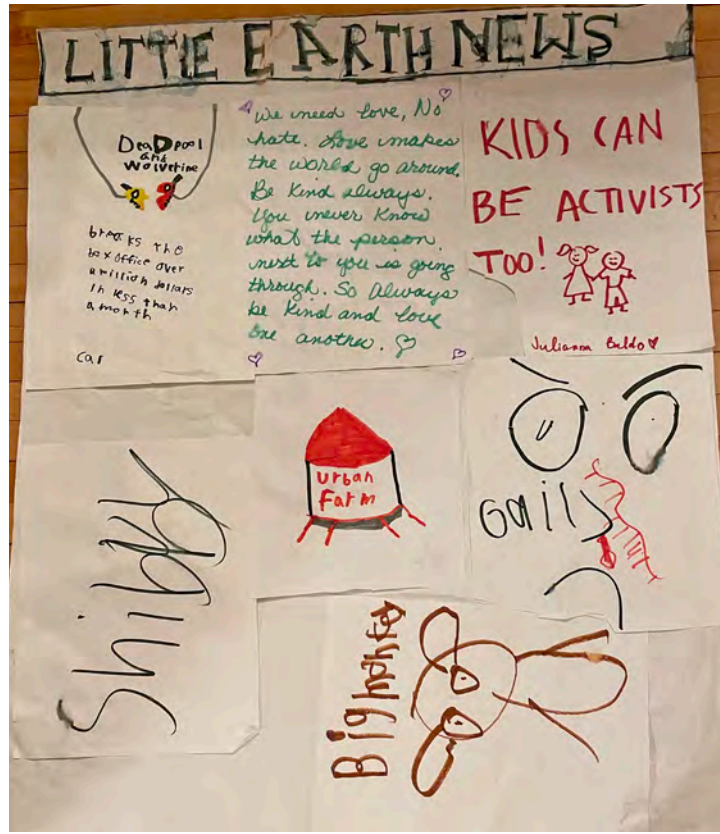 LITTLE EARTH NEWS
DeaDpool
and
Wolverine
breaks the
box office over
a million dollars
in less than
a month
car
We need love, No
hate. Love makes
the world go around.
Be Kind always.
You never know
what the person,
next to you is going
through. So Always
be Kind and love
one another.
KIDS CAN
BE ACTIVISTS
TOO!
Julianna
urban
Farm
Shibby
Big